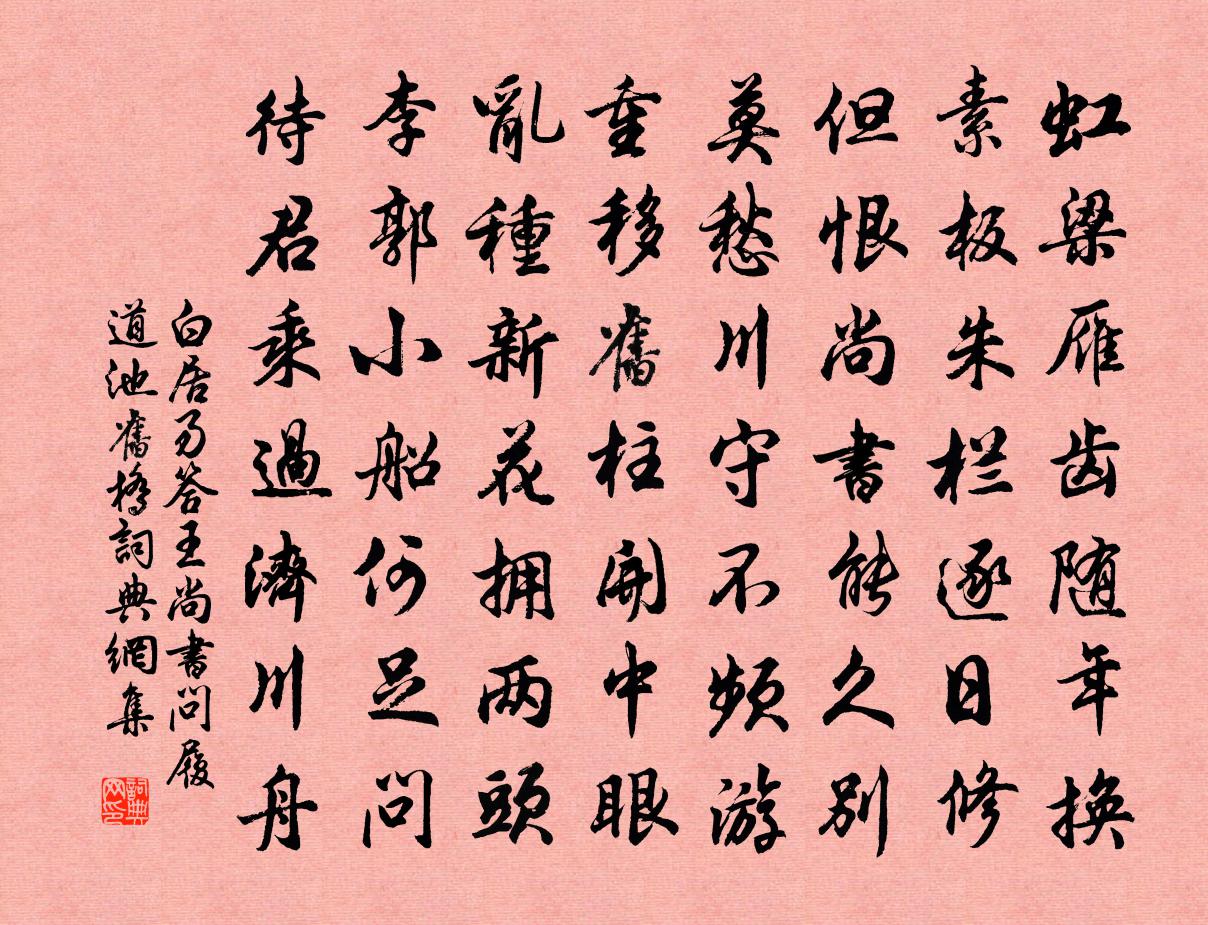 虹梁雁齿随年换
素板朱栏逐日修
但恨尚書能久别
莫愁川守不频游
重移舊柱開中眼
亂種新花拥两頭
李郭小船何足问
待君乘過濟川舟
白居易答王尚書问履
道池舊橋詞典網集
詞典网印